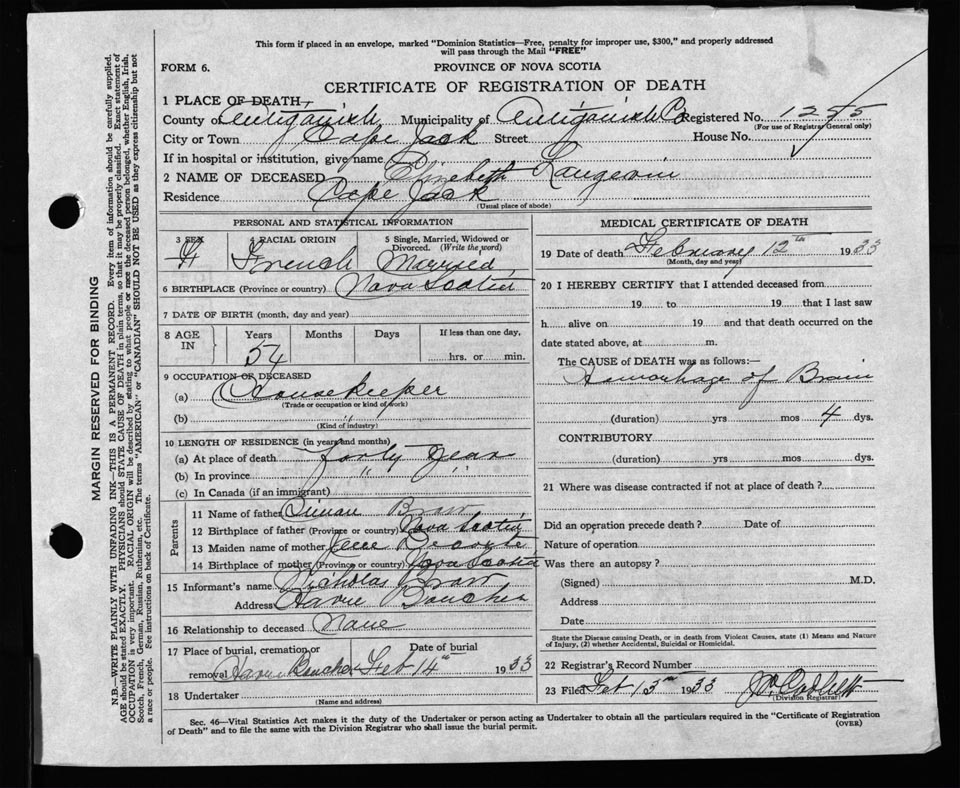 This form if placed in an envelope, marked "Dominion Statistics—Free, penalty for improper use, $300," and properly addressed
will pass through the Mail "FREE"
FORM 6. PROVINCE OF NOVA SCOTIA
CERTIFICATE OF REGISTRATION OF DEATH
1 PLACE OF DEATH,
County of Antigonish, Municipality of Antigonish Co Registered No. 1255
(For use of Registrar General only)
City or Town Cape Jack Street House No.
If in hospital or institution, give name
2 NAME OF DECEASED Elizebeth Langevin
Residence Cape Jack
(Usual place of abode)
PERSONAL AND STATISTICAL INFORMATION
3 SEX 4 RACIAL ORIGIN 5 Single, Married, Widowed or Divorced. (Write the word)
F French Married
6 BIRTHPLACE (Province or country) Nova Scotia
7 DATE OF BIRTH (month, day and year)
8 AGE IN Years Months Days If less than one day,
54 hrs. or min.
9 OCCUPATION OF DECEASED
(a) Housekeeper
(Trade or occupation or kind of work)
(b) "
(Kind of industry)
10 LENGTH OF RESIDENCE (in years and months)
(a) At place of death forty year
(b) In province " "
(c) In Canada (if an immigrant)
Parents
11 Name of father Braw
12 Birthplace of father (Province or country) Nova Scotia
13 Maiden name of mother
14 Birthplace of mother (Province or country) Nova Scotia
15 Informant's name Nicholas Braw
Address Havre Boucher
16 Relationship to deceased
17 Place of burial, cremation or removal Havre Boucher Date of burial Feb 14th 1933
18 Undertaker
(Name and address)
MEDICAL CERTIFICATE OF DEATH
19 Date of death February 12th 1933
(Month, day and year)
20 I HEREBY CERTIFY that I attended deceased from
19 to 19 that I last saw
h alive on 19 and that death occurred on the
date stated above, at m.
The CAUSE of DEATH was as follows:—
Hemorrhage of Brain
(duration) yrs mos 4 dys.
CONTRIBUTORY
(duration) yrs mos dys.
21 Where was disease contracted if not at place of death?
Did an operation precede death? Date of
Nature of operation
Was there an autopsy?
(Signed) M.D.
Address
Date
State the Disease causing Death, or in death from Violent Causes, state (1) Means and Nature
of Injury, (2) whether Accidental, Suicidal or Homicidal.
22 Registrar's Record Number
23 Filed Feb 13 1933
(Division Registrar)
Sec. 46—Vital Statistics Act makes it the duty of the Undertaker or person acting as Undertaker to obtain all the particulars required in the "Certificate of Registration
of Death" and to file the same with the Division Registrar who shall issue the burial permit. (OVER)
MARGIN RESERVED FOR BINDING
N.B.—WRITE PLAINLY WITH UNFADING INK—THIS IS A PERMANENT RECORD. Every item of information should be carefully supplied.
AGE should be stated EXACTLY. PHYSICIANS should STATE CAUSE OF DEATH in plain terms, so that it may be properly classified. Exact statement of
OCCUPATION is very important. RACIAL ORIGIN will be described by stating to what people or race the deceased person belonged, whether English, Irish,
Scotch, French, German, Russian, Ruthenian, etc. The terms "AMERICAN" or "CANADIAN" SHOULD NOT BE USED as they express citizenship but not
a race or people. See instructions on back of Certificate.